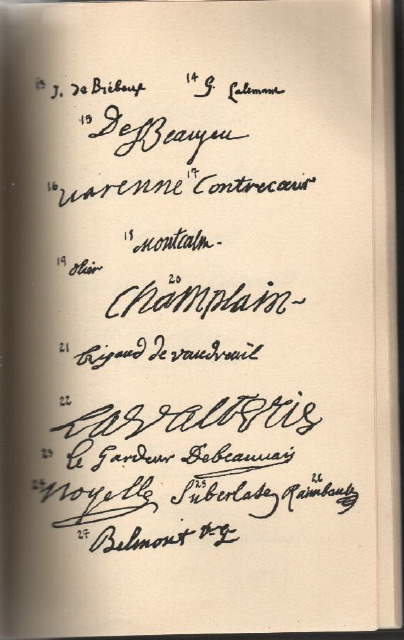 13 J. de Brébeuf 14 G. Lalemant
15 De Beaujeu
16 Varenne 17 Contrecœur
18 Montcalm-
19 Olier
20 Champlain-
21 Rigaud de vaudreuil
22 Lavaltrie
23 Le Gardeur Debeauvais
24 Noyelle 25 Suberlase 26 Raimbault
27 Belmont v.g